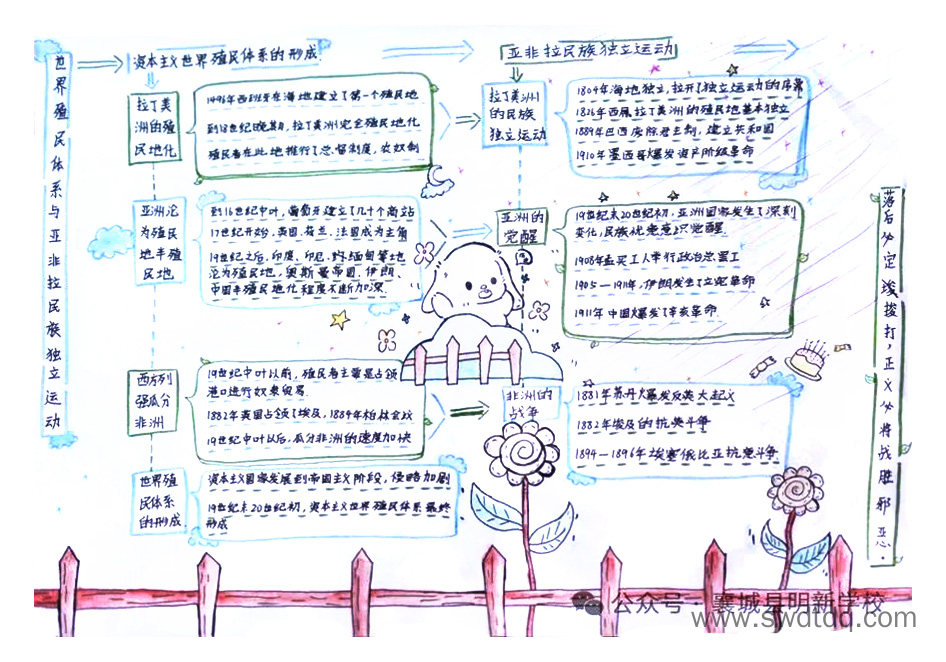 世界殖民体系与亚非拉民族独立运动
资本主义世界殖民体系的形成
拉丁美
洲的殖
民地化
1496年西班牙在海地建立了第一个殖民地
到18世纪晚期，拉丁美洲完全殖民地化
殖民者在此地推行了总督制度、农奴制
亚洲沦
为殖民
地半殖
民地
到16世纪中叶，葡萄牙建立了几十个商站
17世纪开始，英国、荷兰、法国成为主角
19世纪之后，印度、印尼、缅甸等地
沦为殖民地，奥斯曼帝国、伊朗、
中国半殖民地化程度不断加深
西方列
强瓜分
非洲
19世纪中叶以前，殖民者主要是占领
港口进行奴隶贸易
1882年英国占领了埃及，1884年柏林会议
19世纪中叶以后，瓜分非洲的速度加快
世界殖
民体系
的形成
资本主义国家发展到帝国主义阶段，侵略加剧
19世纪末20世纪初，资本主义世界殖民体系最终
形成
亚非拉民族独立运动
拉丁美洲
的民族
独立运动
1804年海地独立，拉开了独立运动的序幕
1826年西属拉丁美洲的殖民地基本独立
1889年巴西废除君主制，建立共和国
1910年墨西哥爆发资产阶级革命
亚洲的
觉醒
19世纪末20世纪初，亚洲国家发生了深刻
变化，民族忧患意识觉醒
1908年孟买工人举行政治总罢工
1905—1911年，伊朗发生了立宪革命
1911年中国爆发了辛亥革命
非洲的
战争
1881年苏丹爆发反英大起义
1882年埃及的抗英斗争
1894—1896年埃塞俄比亚抗意斗争
落后必定没拨打，正义必将战胜邪恶。
公众号·襄城县明新学校
www.swdtdq.com